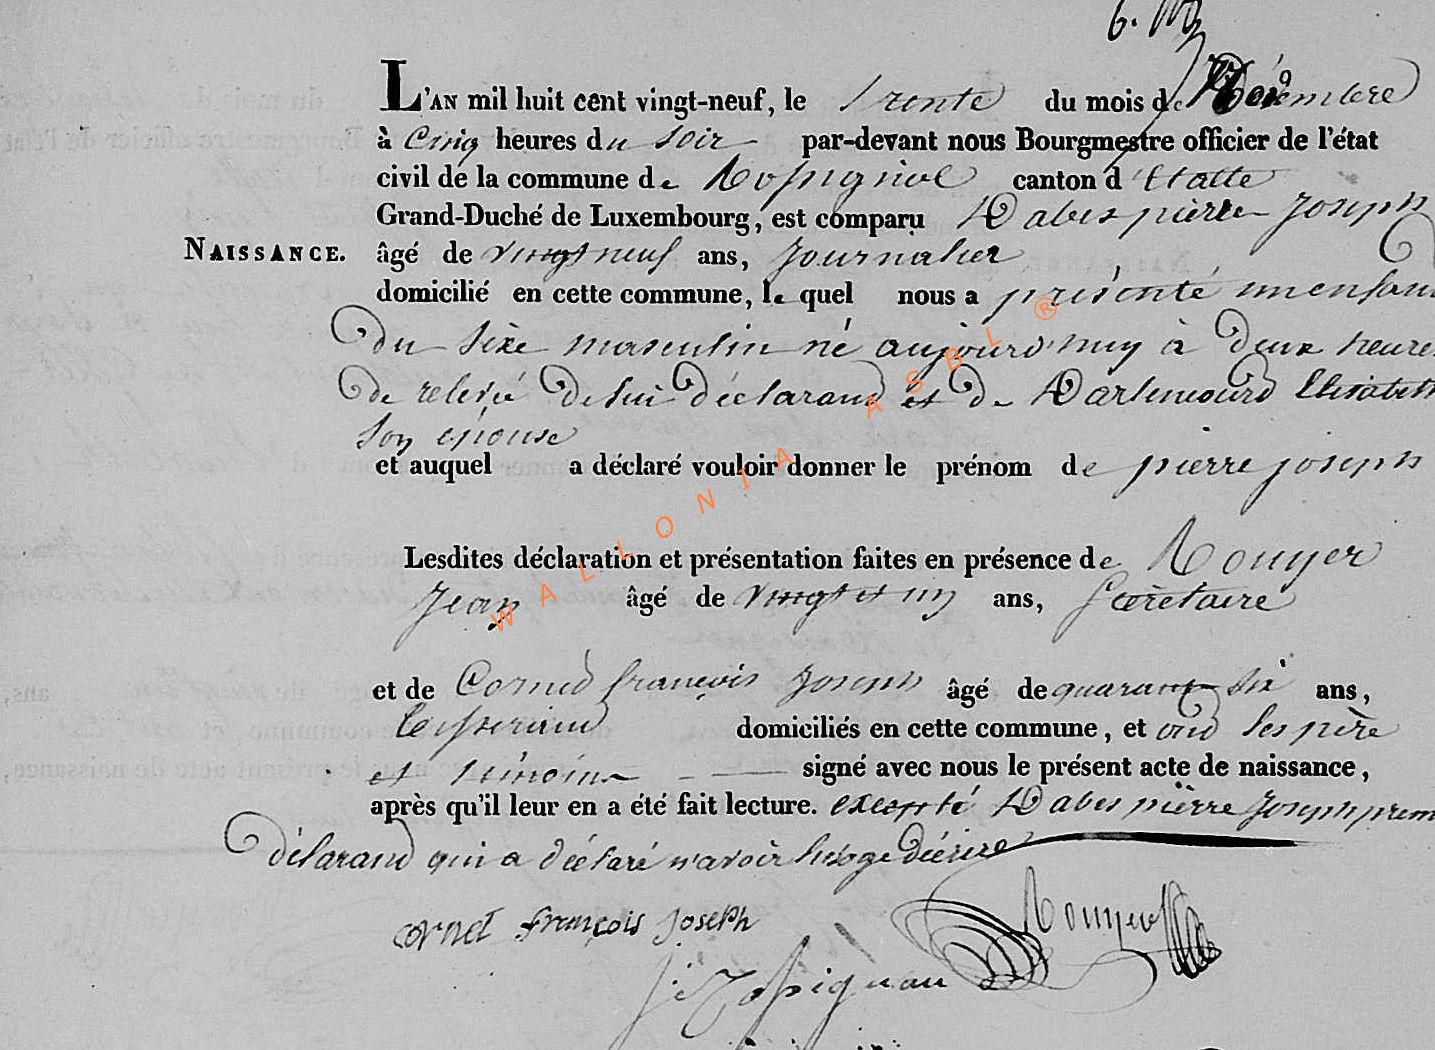 L'AN mil huit cent vingt-neuf, le trente du mois de Décembre
à Cinq heures du soir par-devant nous Bourgmestre officier de l'état
civil de la commune de Rossignol canton d'Etalle
Grand-Duché de Luxembourg, est comparu Dabes pierre Joseph
NAISSANCE. âgé de vingt neuf ans, Journalier
domicilié en cette commune, le quel nous a présenté un enfant
du sèxe masculin né aujourd'huy à deux heures
de relevée de lui déclarand et de Elisabeth
son épouse
et auquel a déclaré vouloir donner le prénom de pierre joseph
Lesdites déclaration et présentation faites en présence de Rouyer
Jean âgé de vingt et un ans, Secrètaire
et de Corned françois Joseph âgé de quarante six ans,
domiciliés en cette commune, et ond les père
et témoins signé avec nous le présent acte de naissance,
après qu'il leur en a été fait lecture. excepté Dabes pierre Joseph prem
déclarand qui a déclaré n'avoir lusage décrire
cornet françois Joseph Rouyer
WALLONIA ASBL ®